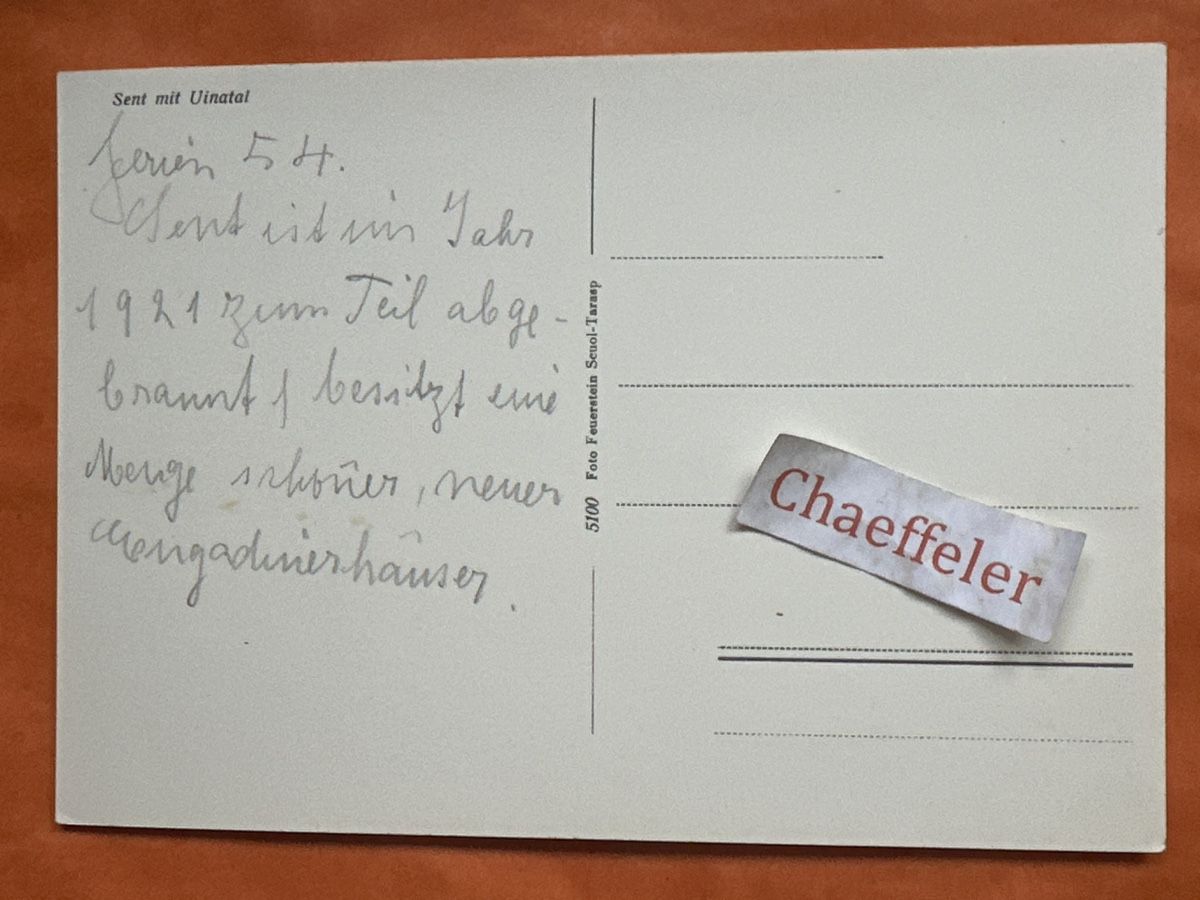 Sent mit Uinatal
Ferien 54.
Sent ist im Jahr
1921 zum Teil abge-
brannt, besitzt eine
Menge schöner, neuer
Engadinerhäuser.
5100 Foto Feuerstein Scuol-Tarasp
Chaeffeler